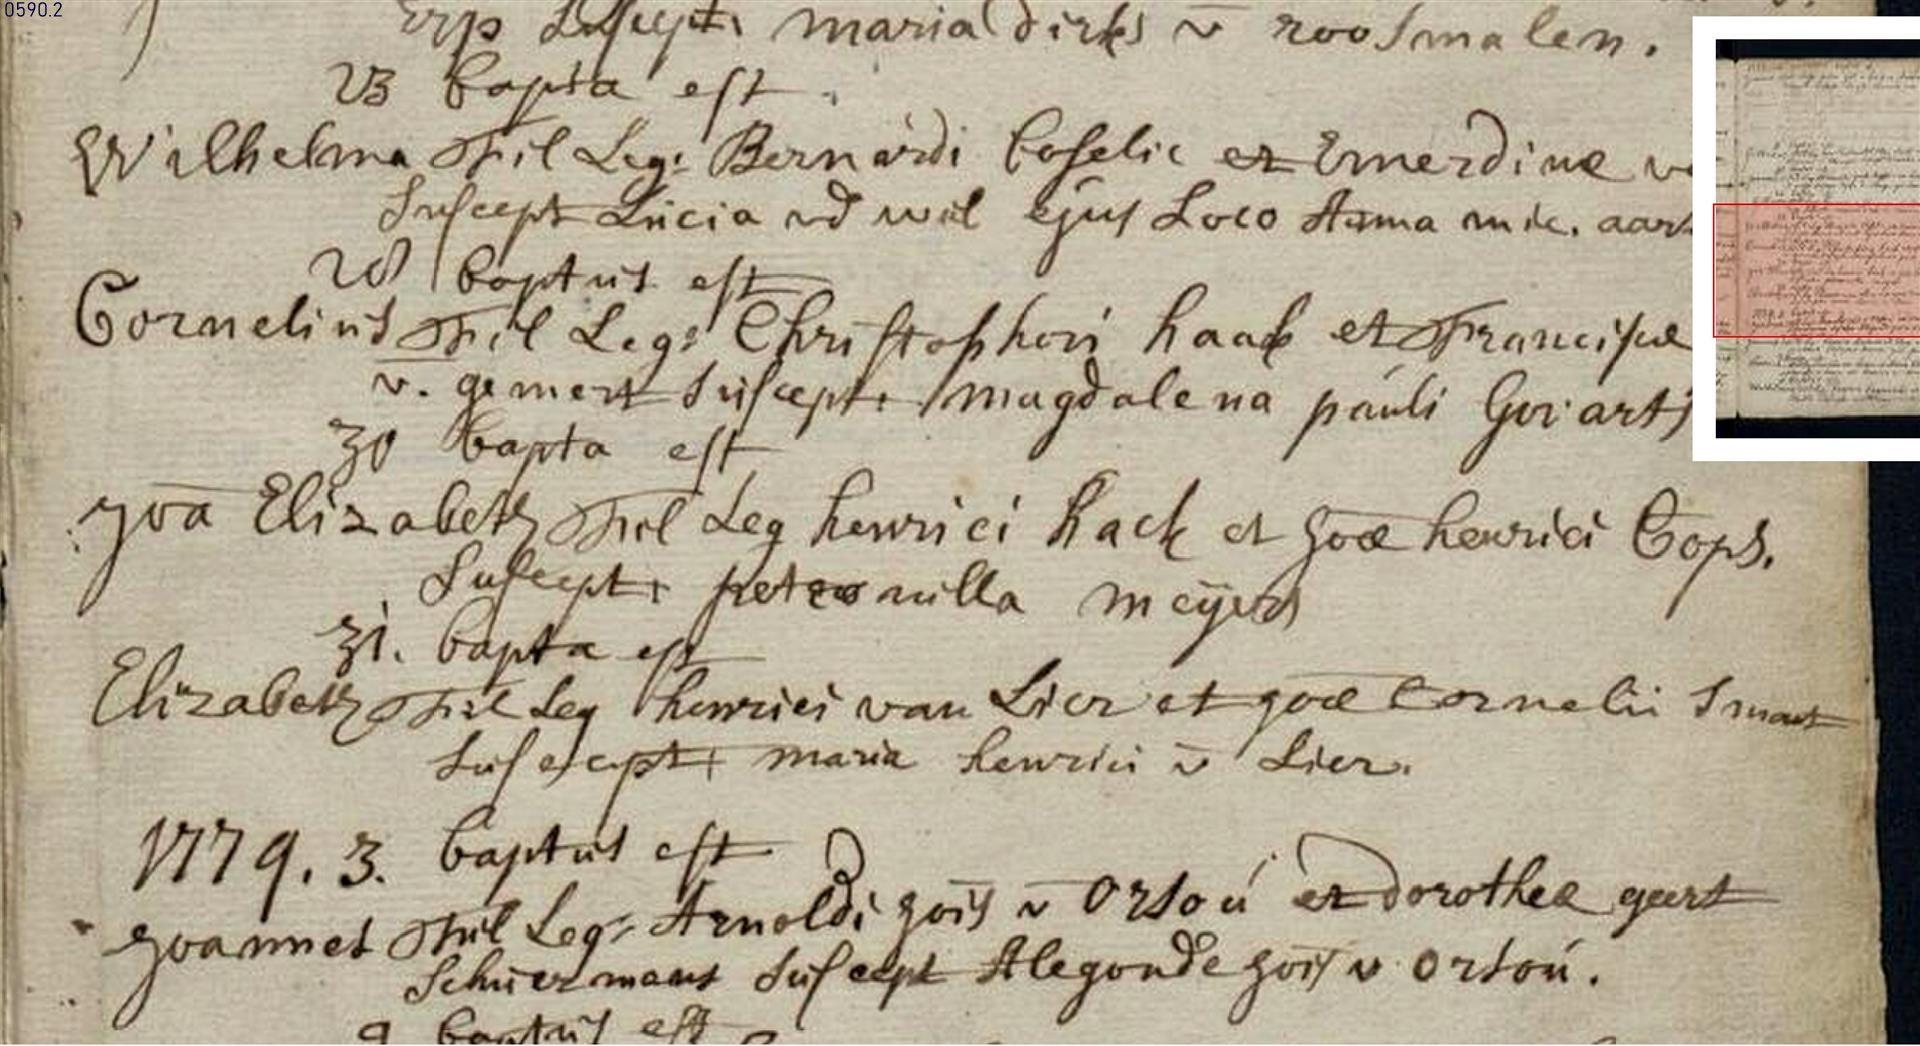 0590.2
Erp Suscept. maria dirks v̄ roosmalen.
23 bapta est
Wilhelma Fil Leg: Bernardi Coselie et Emerdinæ
Suscept Lucia vd wiel ejus Loco Anna mic. aart
28 baptus est
Cornelius Fil Leg: Christophori haak et Francisæ
v. gemert Suscept. magdalena pauli Goiarts
30 bapta est
yoa Elizabeth Fil Leg henrici hack et joæ henrici Cops.
Suscept. petronilla meijers
31. bapta est
Elizabeth Fil Leg henrici van Lier et joæ Cornelii Smant
Suscept. maria henrici v̄ Lier.
1779. 3. baptus est
Joannes Fil Leg: Arnoldi jois v̄ Orsoú et dorotheæ geert
Schuermans Suscept Alegonde jois v Orsoú.
9 baptus est